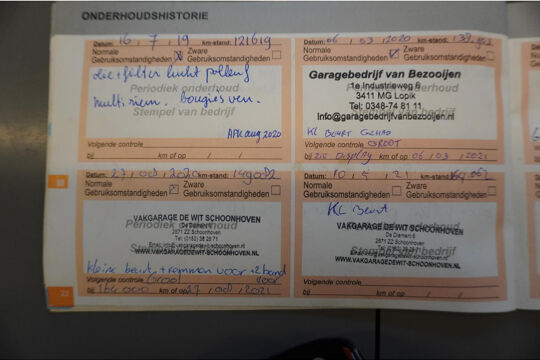 ONDERHOUDSHISTORIE
Datum: 16, 7, 19 km-stand: 121619
Normale Gebruiksomstandigheden
Zware Gebruiksomstandigheden
olie + filter lucht pollenf
Periodiek onderhoud
multi riem. bougies ver.
Stempel van bedrijf
APK aug 2020
Volgende controle
bij km of op / /
Datum: 06, 03, 2020 km-stand:
Normale Gebruiksomstandigheden
Zware Gebruiksomstandigheden
Garagebedrijf van Bezooijen
1e Industrieweg 6
3411 MG Lopik
Tel: 0348-74 81 11
Info@garagebedrijfvanbezooijen.nl
KL BEURT
Volgende controle GROOT
bij ZIE DISPLAY km of op 06, 03, 2021
Datum: 27, 08, 2020 km-stand:
Normale Gebruiksomstandigheden
Zware Gebruiksomstandigheden
VAKGARAGE DE WIT SCHOONHOVEN
Periodiek onderhoud
De Damiem 6
2871 ZZ Schoonhoven
Tel. (0182) 38 28 71
Stempel van bedrijf
WWW.VAKGARAGEDEWIT-SCHOONHOVEN.NL
kleine beurt + remmen voor + 2 band voor
Volgende controle Groot
bij 164 000 km of op 27, 08, 2021
Datum: 10, 5, 21 km-stand:
Normale Gebruiksomstandigheden
Zware Gebruiksomstandigheden
KL Beurt
Periodiek onderhoud
VAKGARAGE DE WIT SCHOONHOVEN
De Damiem 6
2871 ZZ Schoonhoven
Tel. (0182) 38 28 71
Stempel van bedrijf
WWW.VAKGARAGEDEWIT-SCHOONHOVEN.NL
Volgende controle
bij km of op / /
22